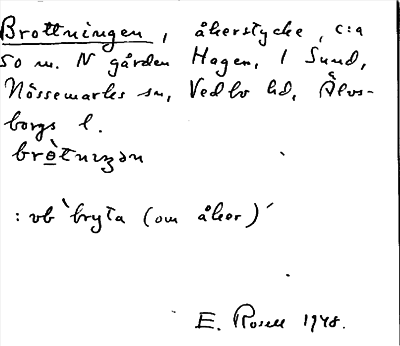 Brottningen, åkerstycke, c:a
50 m. N gården Hagen, 1 Sund,
Nössemarks sn, Vedbo hd, Älvs-
borgs l.
: vb `bryta (om åker)´
E. Rosell 1948.